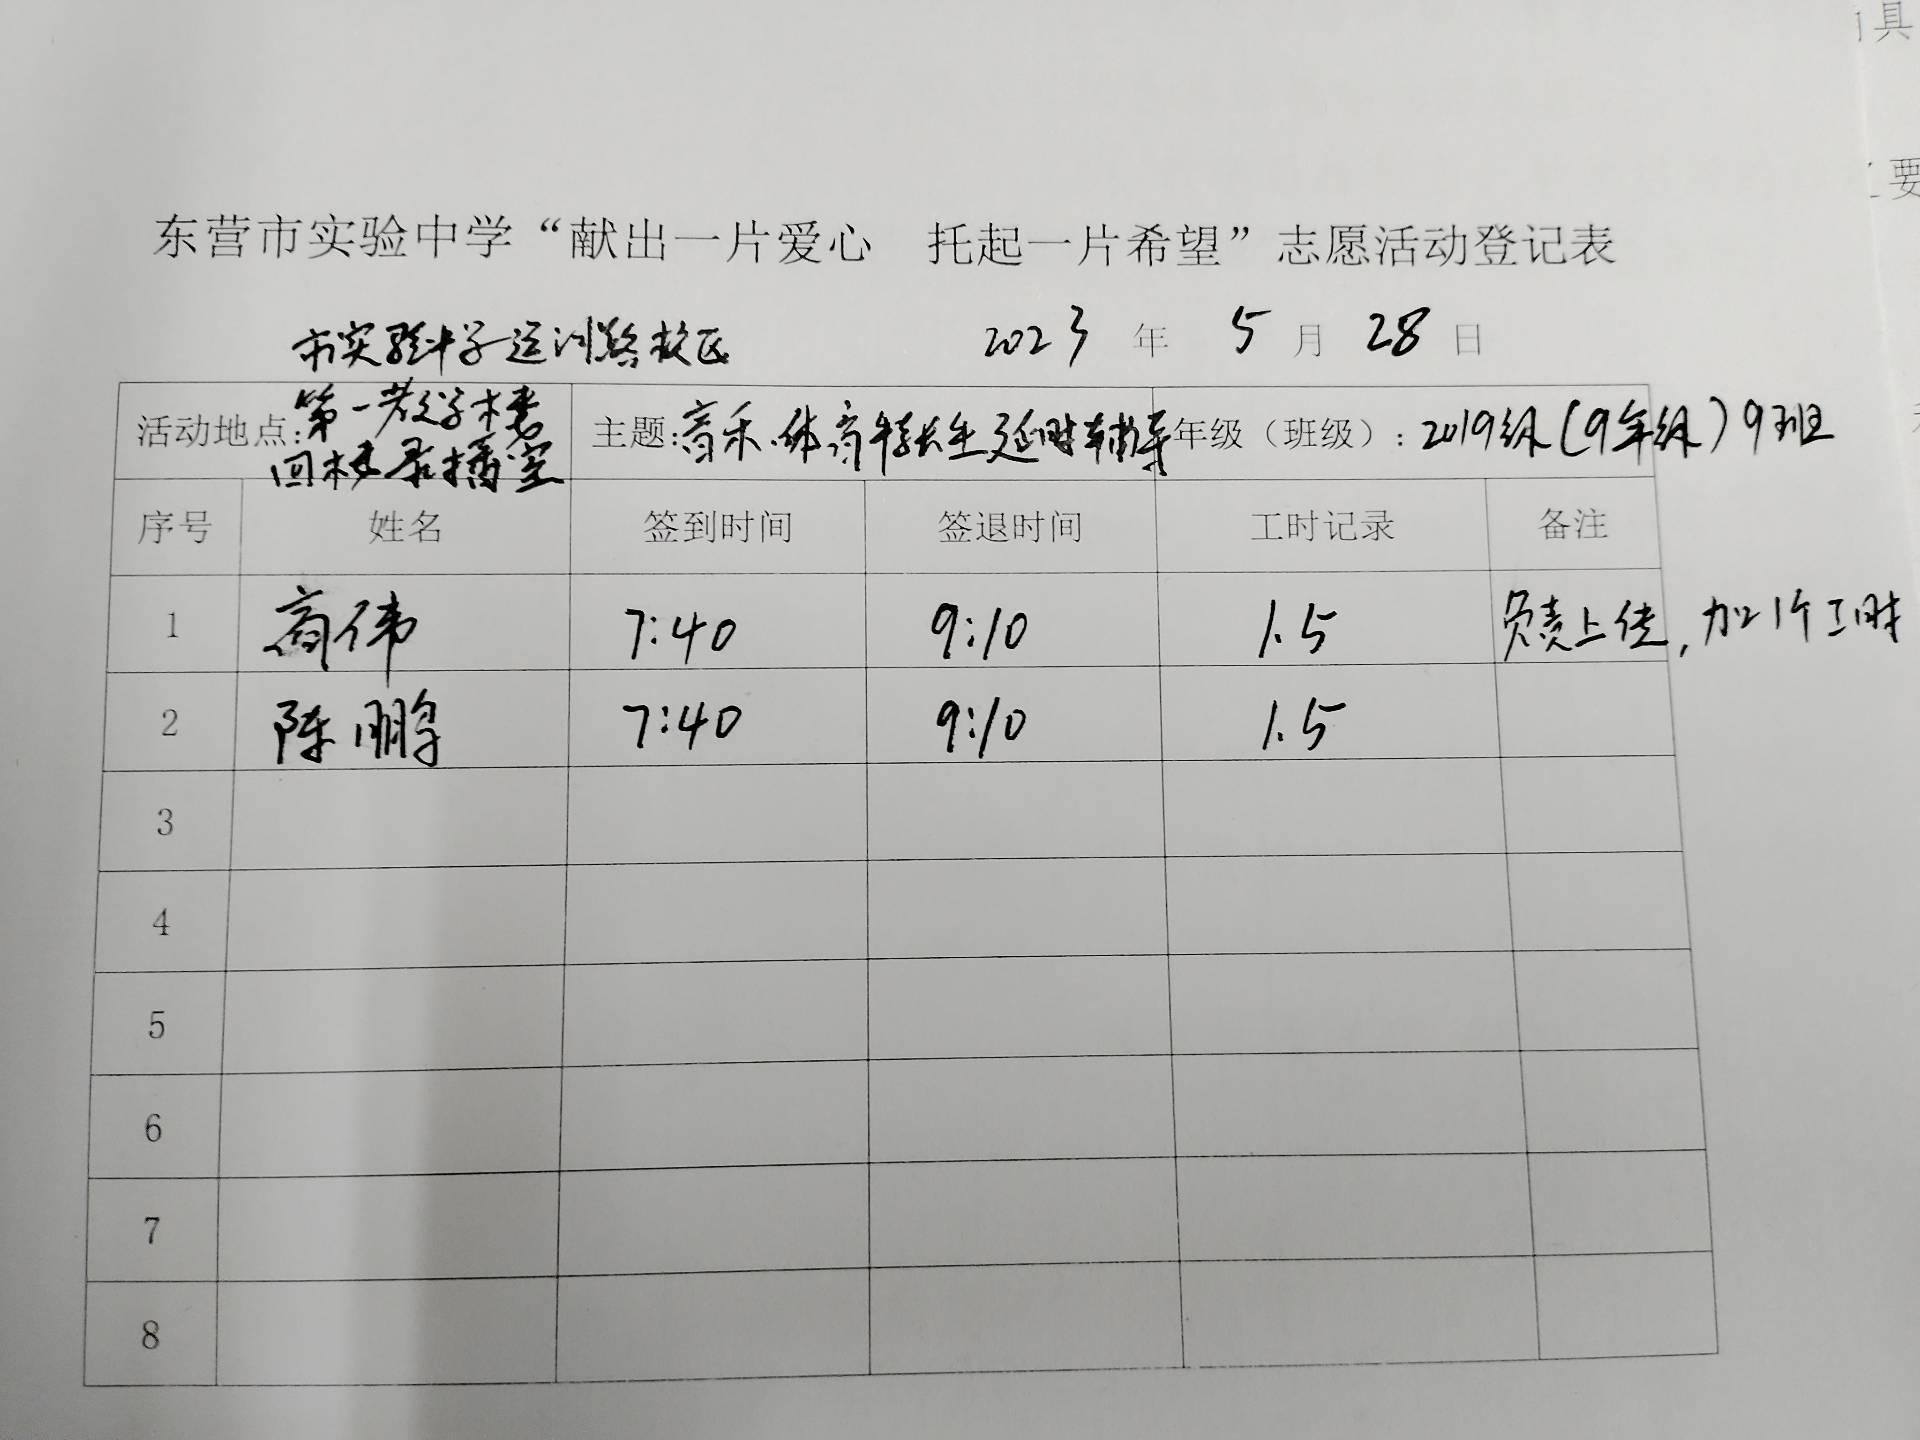 东营市实验中学“献出一片爱心 托起一片希望”志愿活动登记表
市实验中学运河路校区 2023年5月28日
活动地点:第一教学楼
四楼录播室
主题:音乐.体育特长生延时辅导
年级（班级）：2019级(9年级)9班
序号 姓名 签到时间 签退时间 工时记录 备注
1 商伟 7:40 9:10 1.5 负责上传,加1个工时
2 陈鹏 7:40 9:10 1.5
3
4
5
6
7
8
具
要